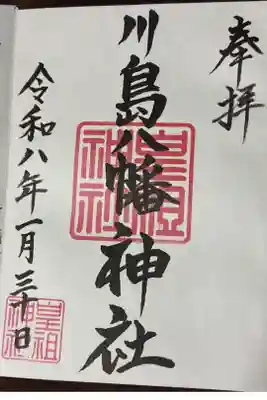 奉拝
川島八幡神社
令和八年一月三十日
皇祖神社
皇祖神社